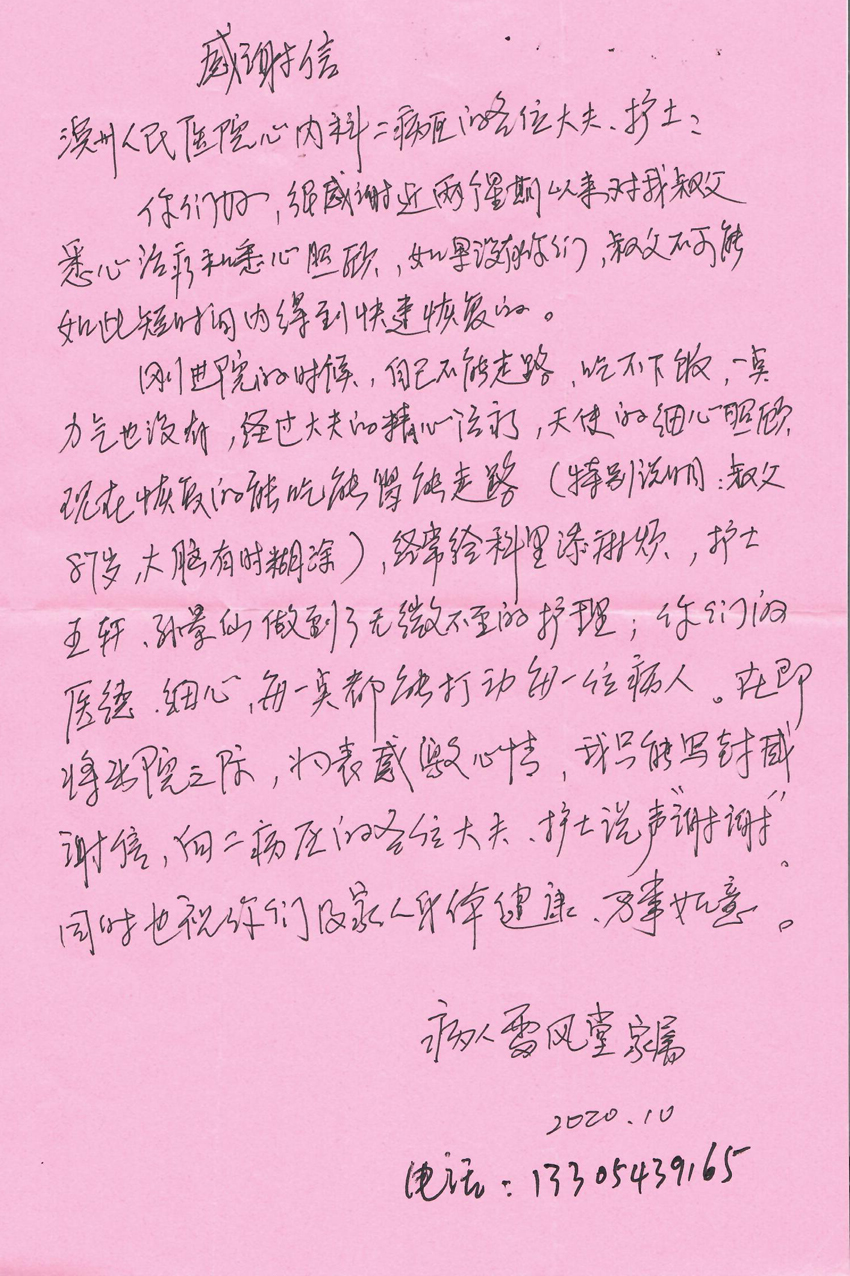 感谢信
滨州人民医院心内科二病区的各位大夫、护士：
你们好，很感谢近两个星期以来对我叔父
悉心治疗和悉心照顾，如果没有你们，叔父不可能
如此短时间内得到快速恢复的。
刚进院的时候，自己不能走路，吃不下饭，一点
力气也没有，经过大夫的精心治疗，天使的细心照顾，
现在恢复的能吃能喝能走路（特别说明：叔父
87岁，大脑有时糊涂），经常给科里添麻烦，护士
王轩、孙景仙做到了无微不至的护理；你们的
医德、细心，每一点都能打动每一位病人。在即
将出院之际，为表感激心情，我只能写封感
谢信，向二病区的各位大夫、护士说声"谢谢"。
同时也祝你们及家人身体健康、万事如意。
病人雷风堂家属
2020.10
电话：13305439165